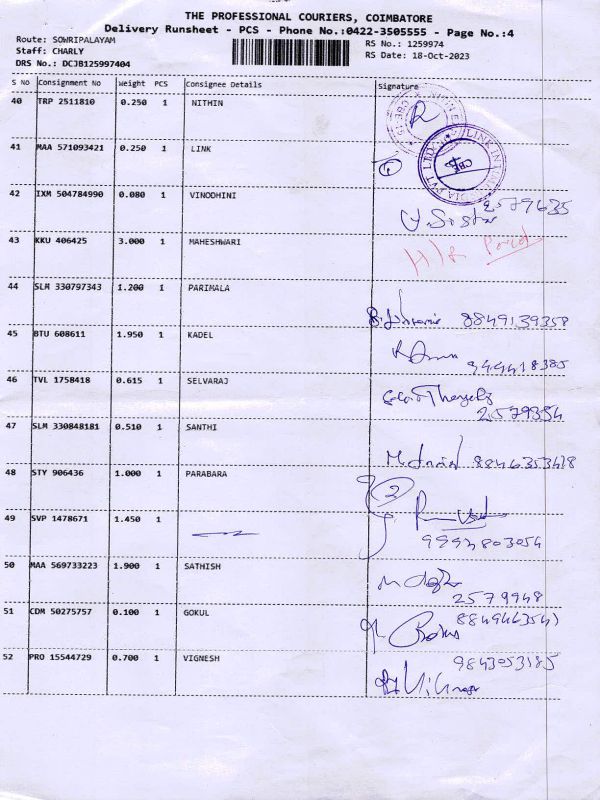 THE PROFESSIONAL COURIERS, COIMBATORE
Delivery Runsheet - PCS - Phone No.:0422-3505555 - Page No.:4
Route: SOWRIPALAYAM
Staff: CHARLY
DRS No.: DCJB125997404
RS No.: 1259974
RS Date: 18-Oct-2023
S No Consignment No Weight PCS Consignee Details Signature
40 TRP 2511810 0.250 1 NITHIN
41 MAA 571093421 0.250 1 LINK
42 IXM 504784990 0.080 1 VINODHINI
2579635
43 KKU 406425 3.000 1 MAHESHWARI
44 SLM 330797343 1.200 1 PARIMALA
8849139358
45 BTU 608611 1.950 1 KADEL
944418385
46 TVL 1758418 0.615 1 SELVARAJ
2579354
47 SLM 330848181 0.510 1 SANTHI
8846353418
48 STY 906436 1.000 1 PARABARA
2
49 SVP 1478671 1.450 1
9993803054
50 MAA 569733223 1.900 1 SATHISH
2579948
51 CDM 50275757 0.100 1 GOKUL
52 PRO 15544729 0.700 1 VIGNESH
9843053185